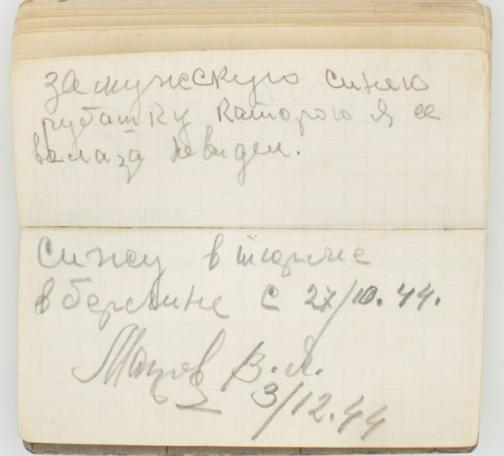 за мужескую синею
рубашку каторою я ее
в глаза не видел.
Сижу в тюрме
в берлине с 27/10.44.
В.Я.
3/12.44